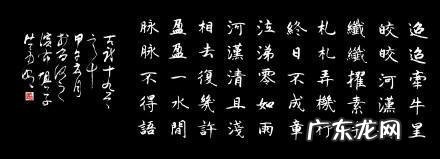 迢迢牽牛星
皎皎河漢
纖纖擢素
札札弄機杼
終日不成章
泣涕零如雨
河漢清且淺
相去復幾許
盈盈一水間
脈脈不得語
古詩十九首
之十
甲午五月
广东龙网